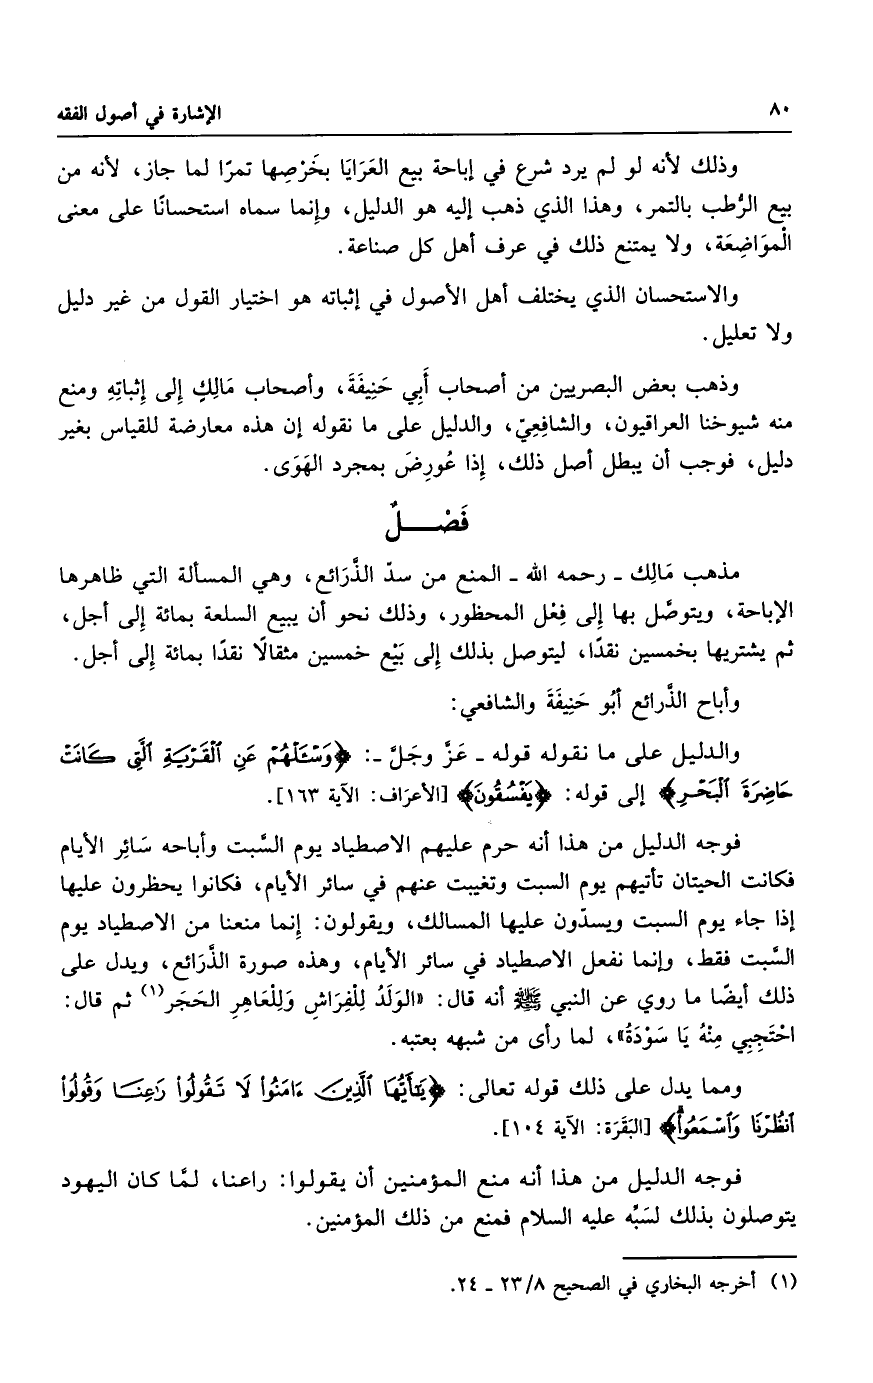 ٨٠ الإشارة في أصول الفقه
وذلك لأنه لو لم يرد شرع في إباحة بيع العَرَايَا بخَرْصِها تمرًا لما جاز، لأنه من
بيع الرُّطب بالتمر، وهذا الذي ذهب إليه هو الدليل، وإنما سماه استحسانًا على معنى
الْموَاضِعَة، ولا يمتنع ذلك في عرف أهل كل صناعة.
والاستحسان الذي يختلف أهل الأصول في إثباته هو اختيار القول من غير دليل
ولا تعليل.
وذهب بعض البصريين من أصحاب أَبِي حَنِيفَةَ، وأصحاب مَالِكٍ إلى إثباتِهِ ومنع
منه شيوخنا العراقيون، والشافِعِيّ، والدليل على ما نقوله إن هذه معارضة للقياس بغير
دليل، فوجب أن يبطل أصل ذلك، إذا عُورِضَ بمجرد الهَوَى.
فَصْـــلٌ
مذهب مَالِك ـ رحمه الله ـ المنع من سدّ الذَّرَائع، وهي المسألة التي ظاهرها
الإباحة، ويتوصَّل بها إلى فِعْل المحظور، وذلك نحو أن يبيع السلعة بمائة إلى أجل،
ثم يشتريها بخمسين نقدًا، ليتوصل بذلك إلى بَيْع خمسين مثقالًا نقدًا بمائة إلى أجل.
وأباح الذَّرائع أبُو حَنِيفَةَ والشافعي:
والدليل على ما نقوله قوله ـ عَزَّ وجَلَّ ـ: ﴿وَسْـَٔلْهُمْ عَنِ ٱلْقَرْيَةِ ٱلَّتِى كَانَتْ
حَاضِرَةَ ٱلْبَحْرِ﴾ إلى قوله: ﴿يَفْسُقُونَ﴾ [الأعرَاف: الآية ١٦٣].
فوجه الدليل من هذا أنه حرم عليهم الاصطياد يوم السَّبت وأباحه سَائِر الأيام
فكانت الحيتان تأتيهم يوم السبت وتغيبت عنهم في سائر الأيام، فكانوا يحظرون عليها
إذا جاء يوم السبت ويسدّون عليها المسالك، ويقولون: إنما منعنا من الاصطياد يوم
السَّبت فقط، وإنما نفعل الاصطياد في سائر الأيام، وهذه صورة الذَّرَائع، ويدل على
ذلك أيضًا ما روي عن النبي ﷺ أنه قال: «الوَلَدُ لِلْفِرَاشِ وَلِلْعَاهِرِ الحَجَر(١) ثم قال:
احْتَجِبِي مِنْهُ يَا سَوْدَةُ»، لما رأى من شبهه بعتبه.
ومما يدل على ذلك قوله تعالى: ﴿يَٰٓأَيُّهَا ٱلَّذِينَ ءَامَنُوا۟ لَا تَقُولُوا۟ رَٰعِنَا وَقُولُوا۟
ٱنظُرْنَا وَٱسْمَعُوا۟ۗ﴾ [البَقَرَة: الآية ١٠٤].
فوجه الدليل من هذا أنه منع المؤمنين أن يقولوا: راعنا، لمَّا كان اليهود
يتوصلون بذلك لسَبِّه عليه السلام فمنع من ذلك المؤمنين.
(١) أخرجه البخاري في الصحيح ٢٣/٨ ـ ٢٤.